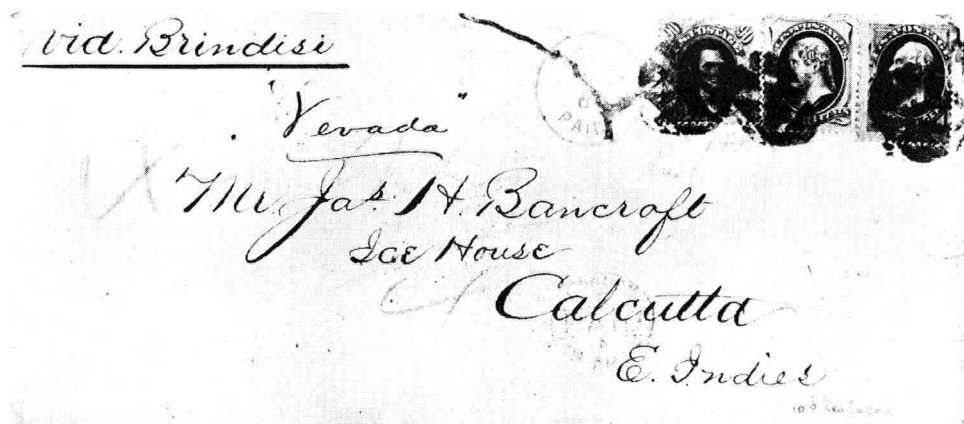 via. Brindisi
"Nevada"
PAID
Mr. Jas. H. Bancroft
Ice House
Calcutta
E. Indies